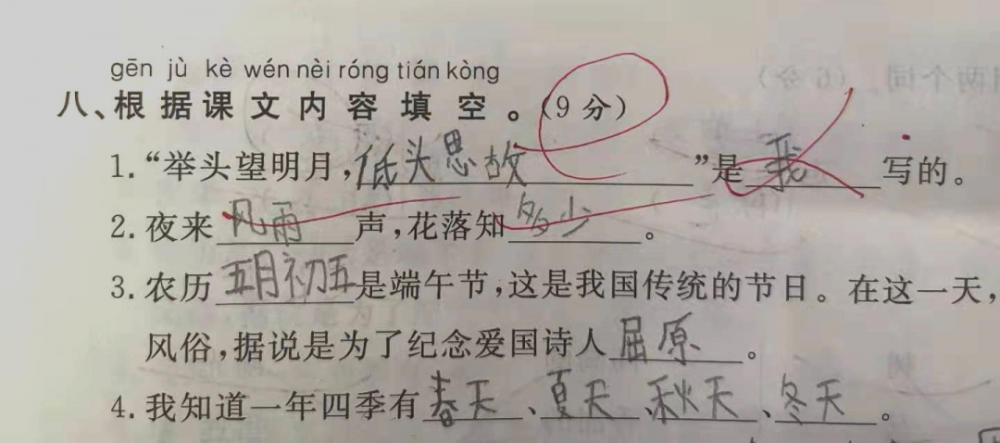 gēn jù kè wén nèi róng tián kòng
八、根据课文内容填空。(9分)
1.“举头望明月,低头思故”是我写的。
2.夜来风雨声,花落知多少。
3.农历五月初五是端午节,这是我国传统的节日。在这一天,
风俗,据说是为了纪念爱国诗人屈原。
4.我知道一年四季有春天、夏天、秋天、冬天。